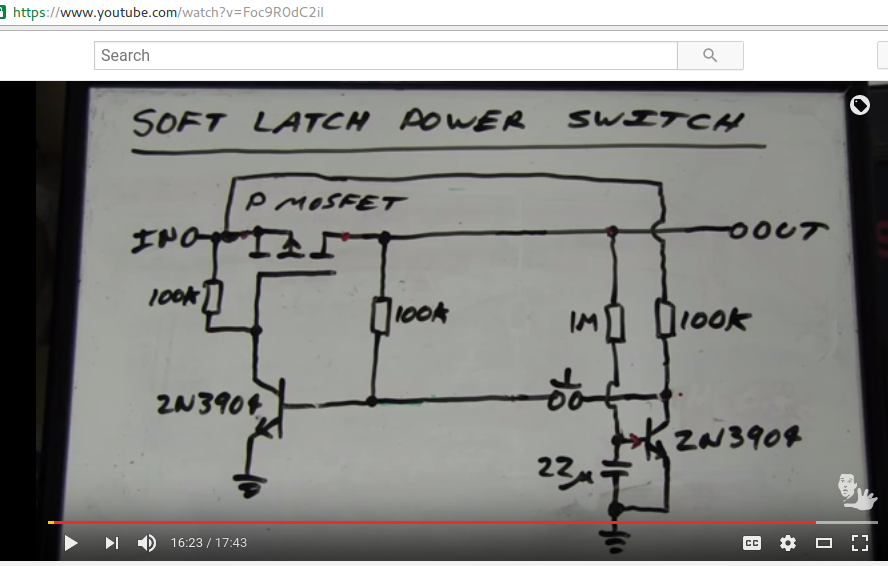 https://www.youtube.com/watch?v=Foc9R0dC2iI
Search
SOFT LATCH POWER SWITCH
P MOSFET
IN
OUT
100K
100K
1M
100K
2N3904
2N3904
22µ
16:23 / 17:43
CC